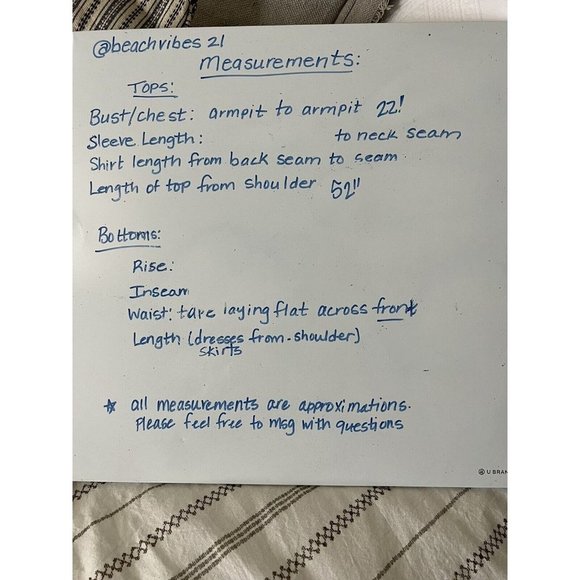 @beachvibes 21
Measurements:
Tops:
Bust/chest: armpit to armpit 22!
Sleeve Length: to neck seam
Shirt length from back seam to seam
Length of top from shoulder 52"
Bottoms:
Rise:
Inseam
Waist: take laying flat across front
Length (dresses from-shoulder)
skirts
☆ all measurements are approximations.
Please feel free to msg with questions
U BRAN